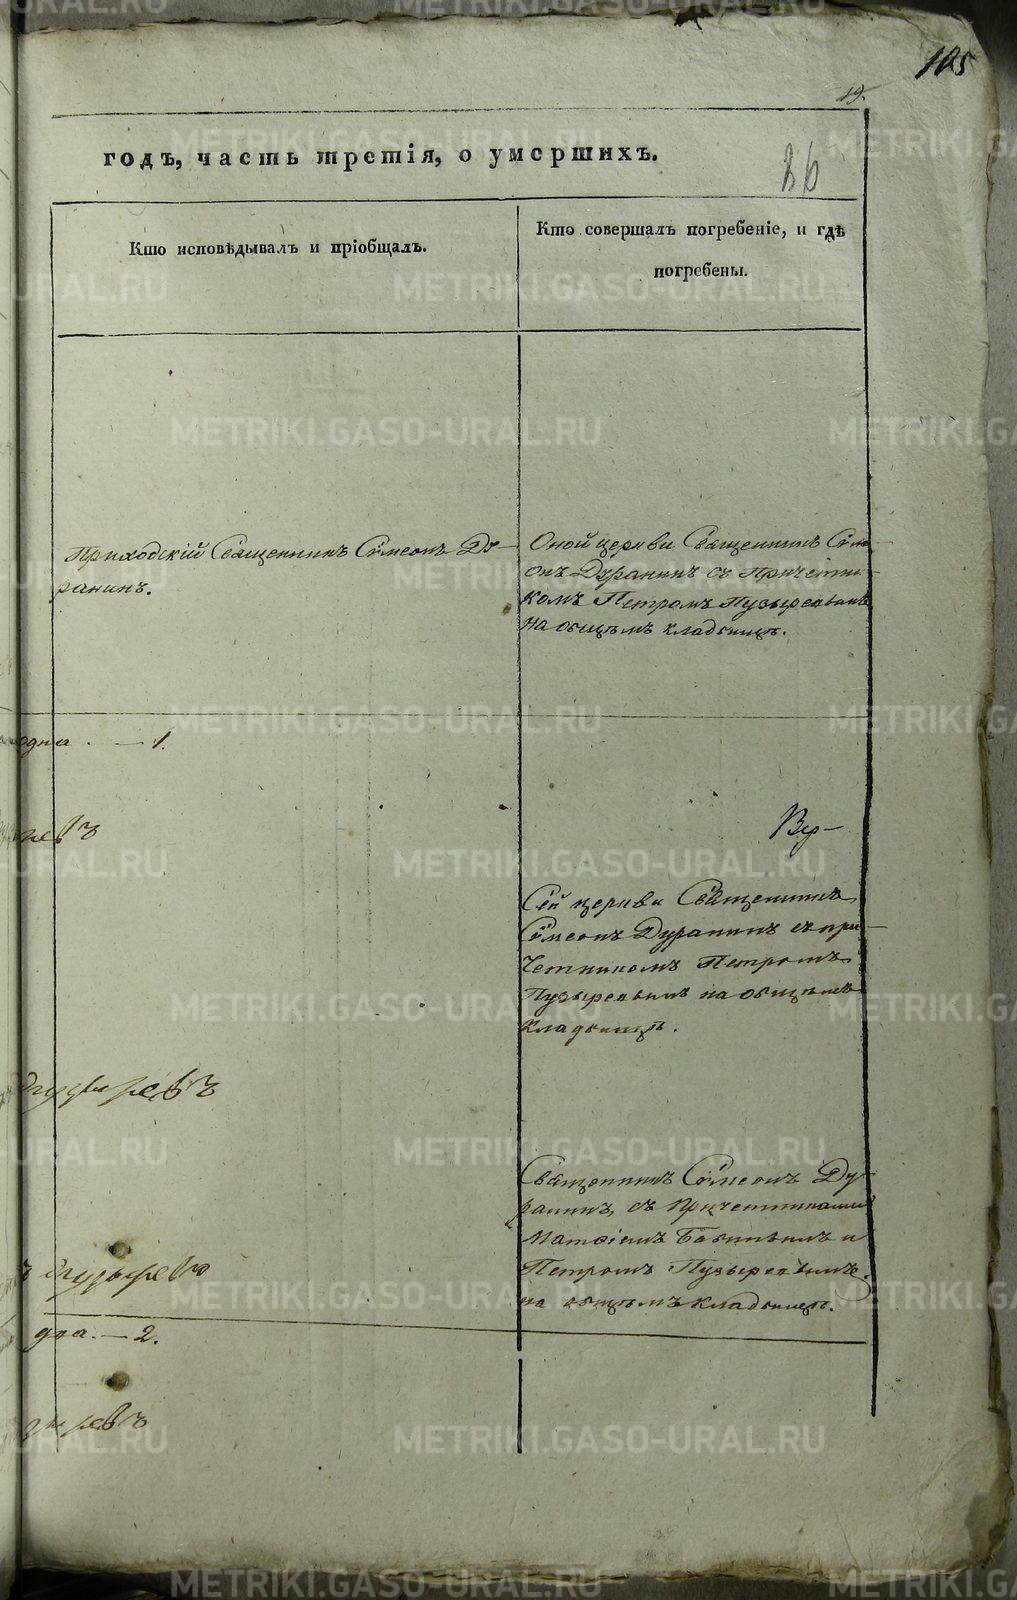 105
19.
годъ, часть третія, о умершихъ.
26
Кто исповѣдывалъ и пріобщалъ.
Кто совершалъ погребеніе, и гдѣ
погребены.
Приходскій Священникъ Сѵмеонъ Ду-
ранинъ.
Оной церкви Священникъ Сѵме-
онъ Дуранинъ съ Причетни-
комъ Петромъ Пузыревымъ
на общѣмъ кладбищѣ.
одна . — 1.
Сей церкви Священникъ
Сѵмеонъ Дуранинъ съ при-
четникомъ Петромъ
Пузыревымъ на общѣмъ
кладбищѣ.
Священникъ Сѵмеонъ Ду-
ранинъ, съ Причетниками
Матѳіемъ Бабинымъ и
Петромъ Пузыревымъ
на общѣмъ кладбищѣ.
два. — 2.
METRIKI.GASO-URAL.RU